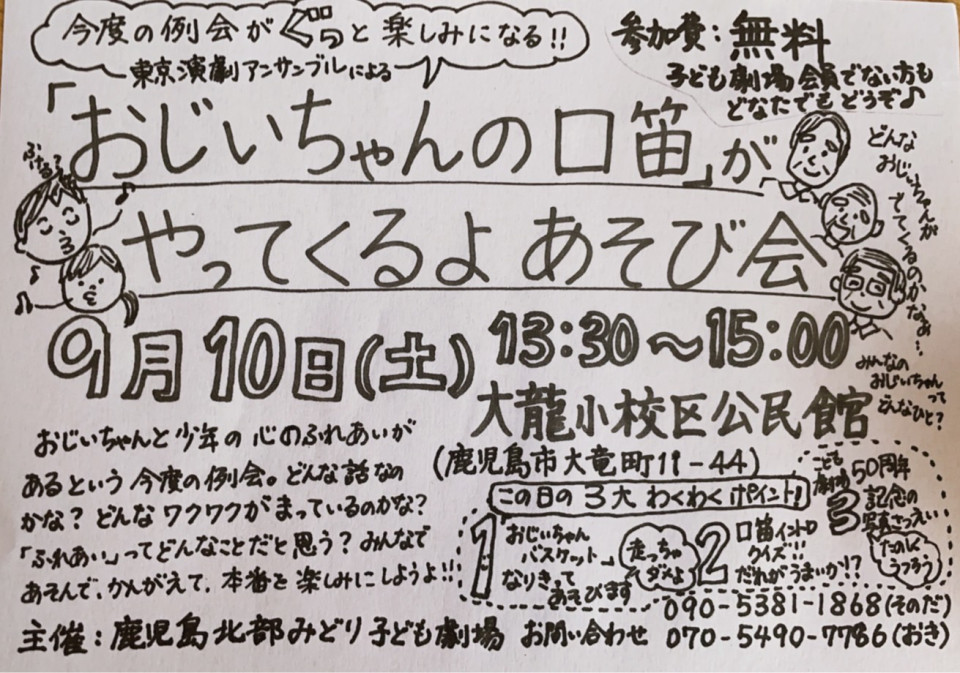 今度の例会がぐっと楽しみになる!!
東京演劇アンサンブルによる
参加費:無料
子ども劇場会員でない方も
どなたでもどうぞ♪
「おじいちゃんの口笛」が
やってくるよ あそび会
ふける?
どんな
おじいちゃんが
でてくるのかなぁ…
みんなの
おじいちゃん
って
どんなひと?
9月10日(土)
13:30〜15:00
大龍小校区公民館
(鹿児島市大竜町11-44)
おじいちゃんと少年の心のふれあいが
あるという今度の例会。どんな話なの
かな?どんなワクワクがまっているのかな?
「ふれあい」ってどんなことだと思う?みんなで
あそんで、かんがえて、本番を楽しみにしようよ!!
この日の3大わくわくポイント!
1 「おじいちゃん
バスケット」
なりきって
あそびます
走っちゃ
ダメよ
2 口笛イントロ
クイズ!!
だれがうまいか!?
3 こども
劇場50周年
記念の
写真さつえい
たのしく
うつろう
主催:鹿児島北部みどり子ども劇場
お問い合わせ
090-5381-1868(そのだ)
070-5490-7786(おき)